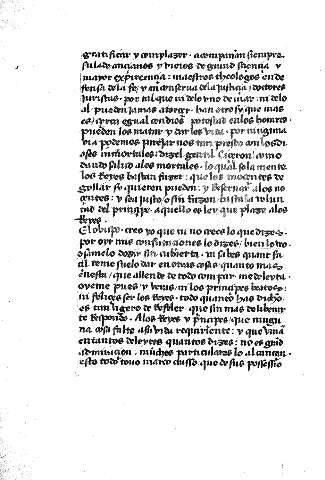 gratificar y complazer · acompañan siempre
su lado ançianos y viejos de grand sçiençia y
mayor experiençia: maestros theologos en de
fensa de la fe y en conserua de la justiçia doctores
juristas · por tal que ni del vno de mar ni del o
al pueden jamas
es · es en egual con dios potestad en los honbres
pueden los matar y dar les vida · por ninguna
via podemos mejor nos tan presto a los di
oses inmortales: dize el gentil Çiçeron como
dando salud a los mortales · lo qual sola mente
los Reyes bastan fazer: que los inoçentes de
gollar sy quieren pueden: y Reseruar a los no
çentes: y sea justo o sin Razon basta la volun
tad del prinçipe. aquello es ley que plaze a los
Reyes.
El obispo. creo yo que tu no creès lo que dizes
por oyr mis confutaçiones lo dizes: bien lo
o samelo dezir sin cubierta. ni sabes quant fa
al reme suelo dar en otras cosas quanto mas
en esta: que allende de todo conpar me deleyta.
oyeme pues y veras ni los prinçipes beatos:
ni feliçes ser los Reyes. todo quanto has dicho
es tan ligero de Resoluer que sin mas deliberar
te Respondo. A los Reyes y prinçipes que ningu
na cosa falte a su vida requiriente: y que biuan
en tantos deleytes quantos dizes: no es grand
admiraçion. muchos particulares lo alcançan.
esto todo touo marco classo. que de sus possessio